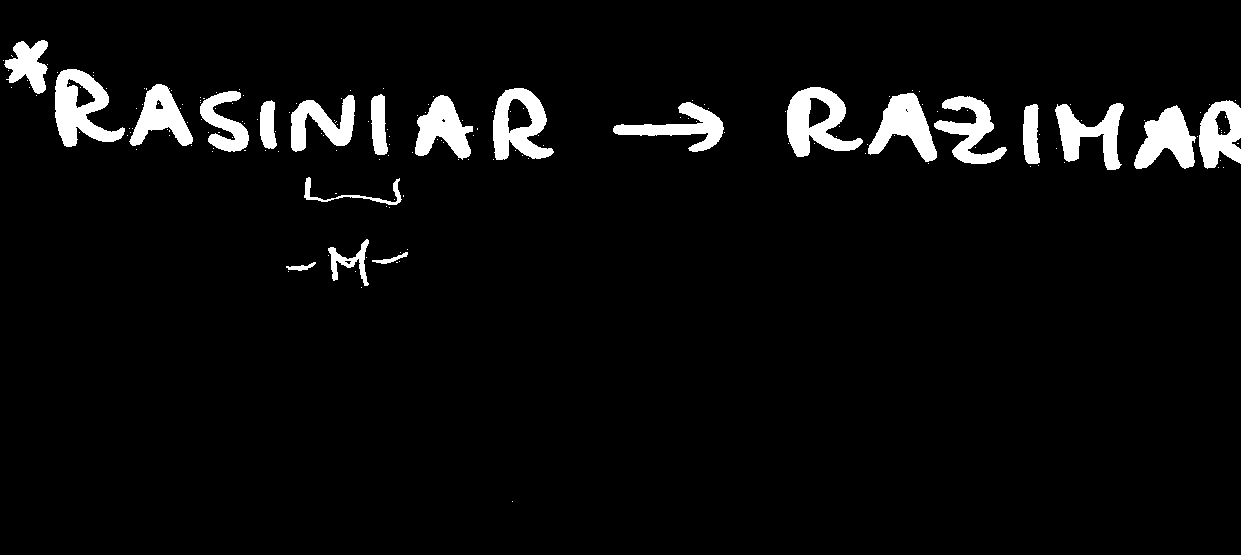 *RASINIAR → RAZIMAR
-M-